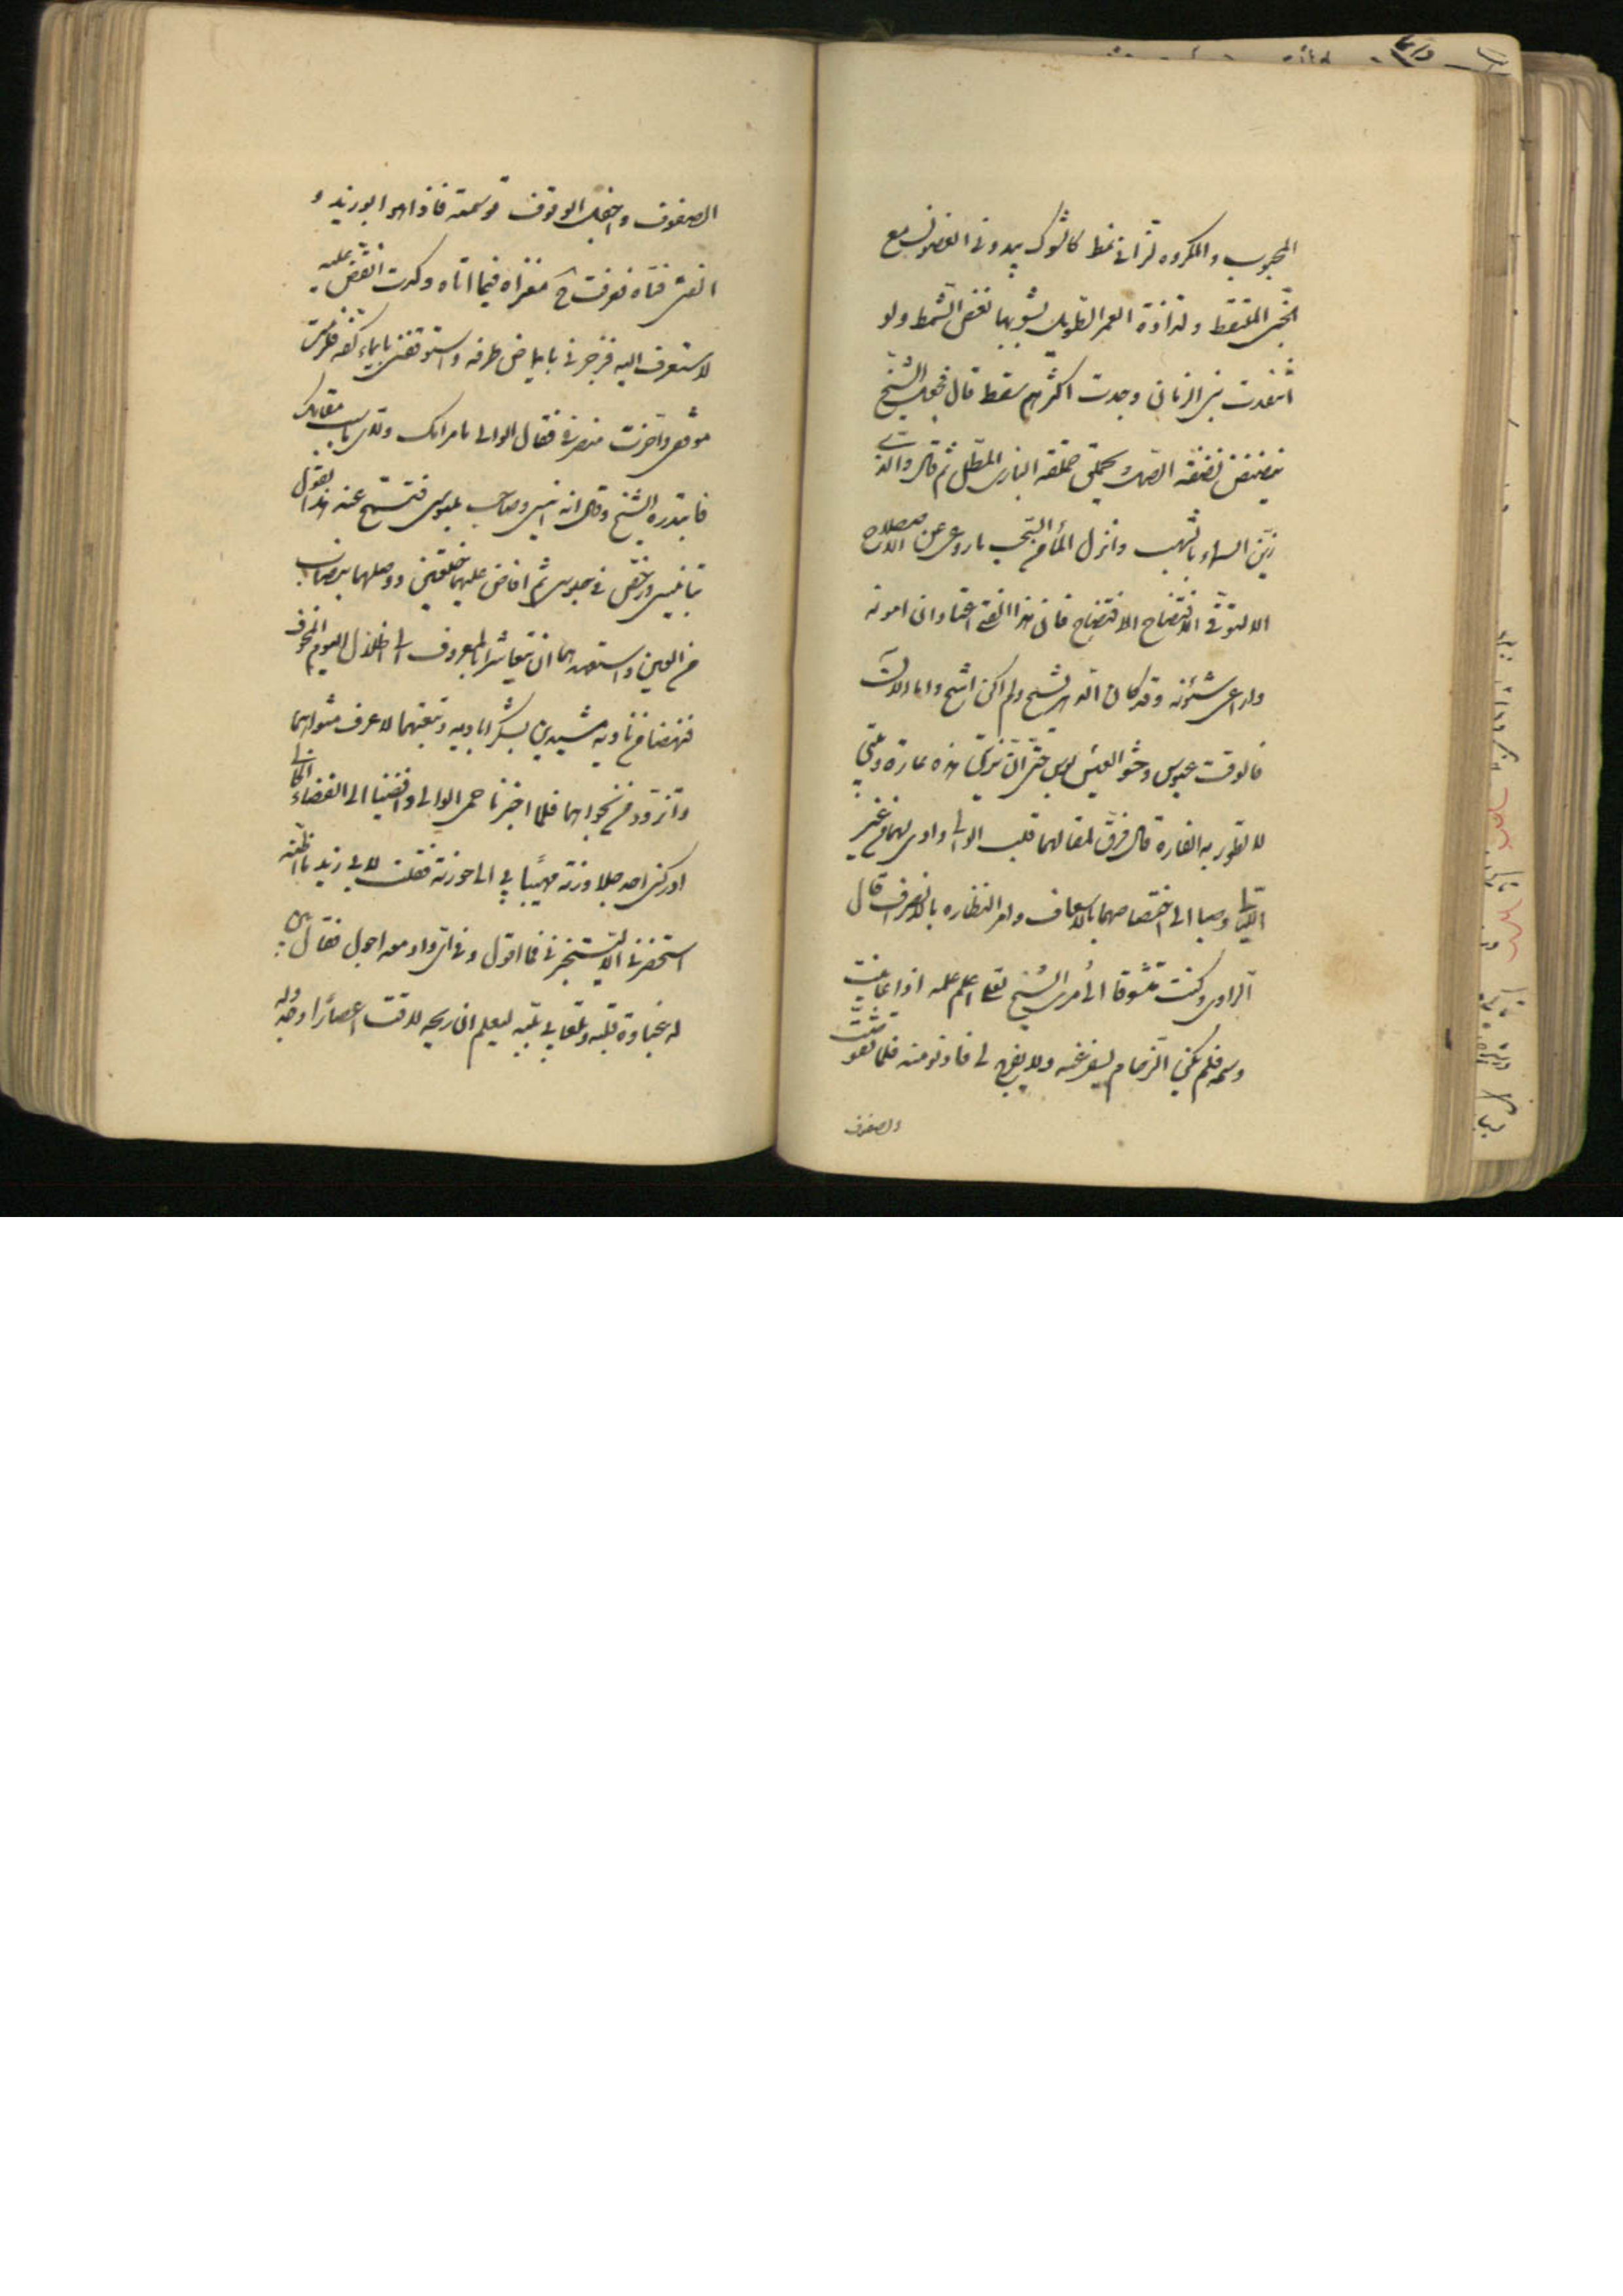 المحبوب والمكروه لزا في نمط كالشوك يبدو في الغصون مع
الجنى الملتقط ولذاذة العمر الطويل يشوبها نغص الشمط ولو
انتقدت بنى الزمان وجدت اكثرهم سقط قال فجعل الشيخ
ينضنض نضنضة الصل ويحملق حملقة البازى المطل ثم قال والذى
زين السماء بالشهب وانزل الماء من السحب ما روغى عن الاصطلاح
الا لتوقى الافتضاح فان هذا الفتى اعتاد ان امونه
واراعى شئونه وقد كان الدهر يسح ولم اكن اشح واما الان
فالوقت عبوس وحشو العيش بوس حتى ان بزتى هذه عارة وبيتى
لا تطور به الفارة قال فرق لمقالهما قلب الوالى واوى لهما من غير
الليالى وصبا الى اختصاصهما بالاسعاف وامر النظارة بالانصراف قال
الراوى وكنت متشوفا الى مرأى الشيخ لعلى اعلم علمه اذا عاينت
وسمه فلم يكن الزحام يسفر عنه ولا يفرج لى فادنو منه فلما تقوضت
الصفوف
الصفوف واجفل الوقوف توسمته فاذا هو ابو زيد و
الفتى فتاه فعرفت ح مغزاه فيما اتاه وكدت انقض عليه
لاستعرف اليه فزجرنى بايماض طرفه واستوقفنى بايماء كفه فلزمت
موقفى واخرت منصرفى فقال الوالى ما مرامك ولاى سبب مقامك
فابتدره الشيخ وقال انه انيسى وصاحب ملبوسى فتسمح عند هذا القول
بتانيسى ورخص فى جلوسى ثم افاض عليهما خلعتين ووصلهما بنصاب
من العين واستعهدهما ان يتعاشرا بالمعروف الى اظلال اليوم المخوف
فنهضا من ناديه مشيدين بشكر اياديه وتبعتهما لاعرف مثواهما
واتزود من نجواهما فلما اجزنا حمى الوالى وافضينا الى الفضاء الخالى
ادركنى احد جلاوزته مهيبا بى الى حوزته فقلت لابى زيد ما اظنه
استحضرنى الا ليستخبرنى فما اقول وفى اى واد معه اجول فقال بين
له غباوة قلبه وتلعابى بلبه ليعلم ان ريحه لاقت اعصارا وجدوله